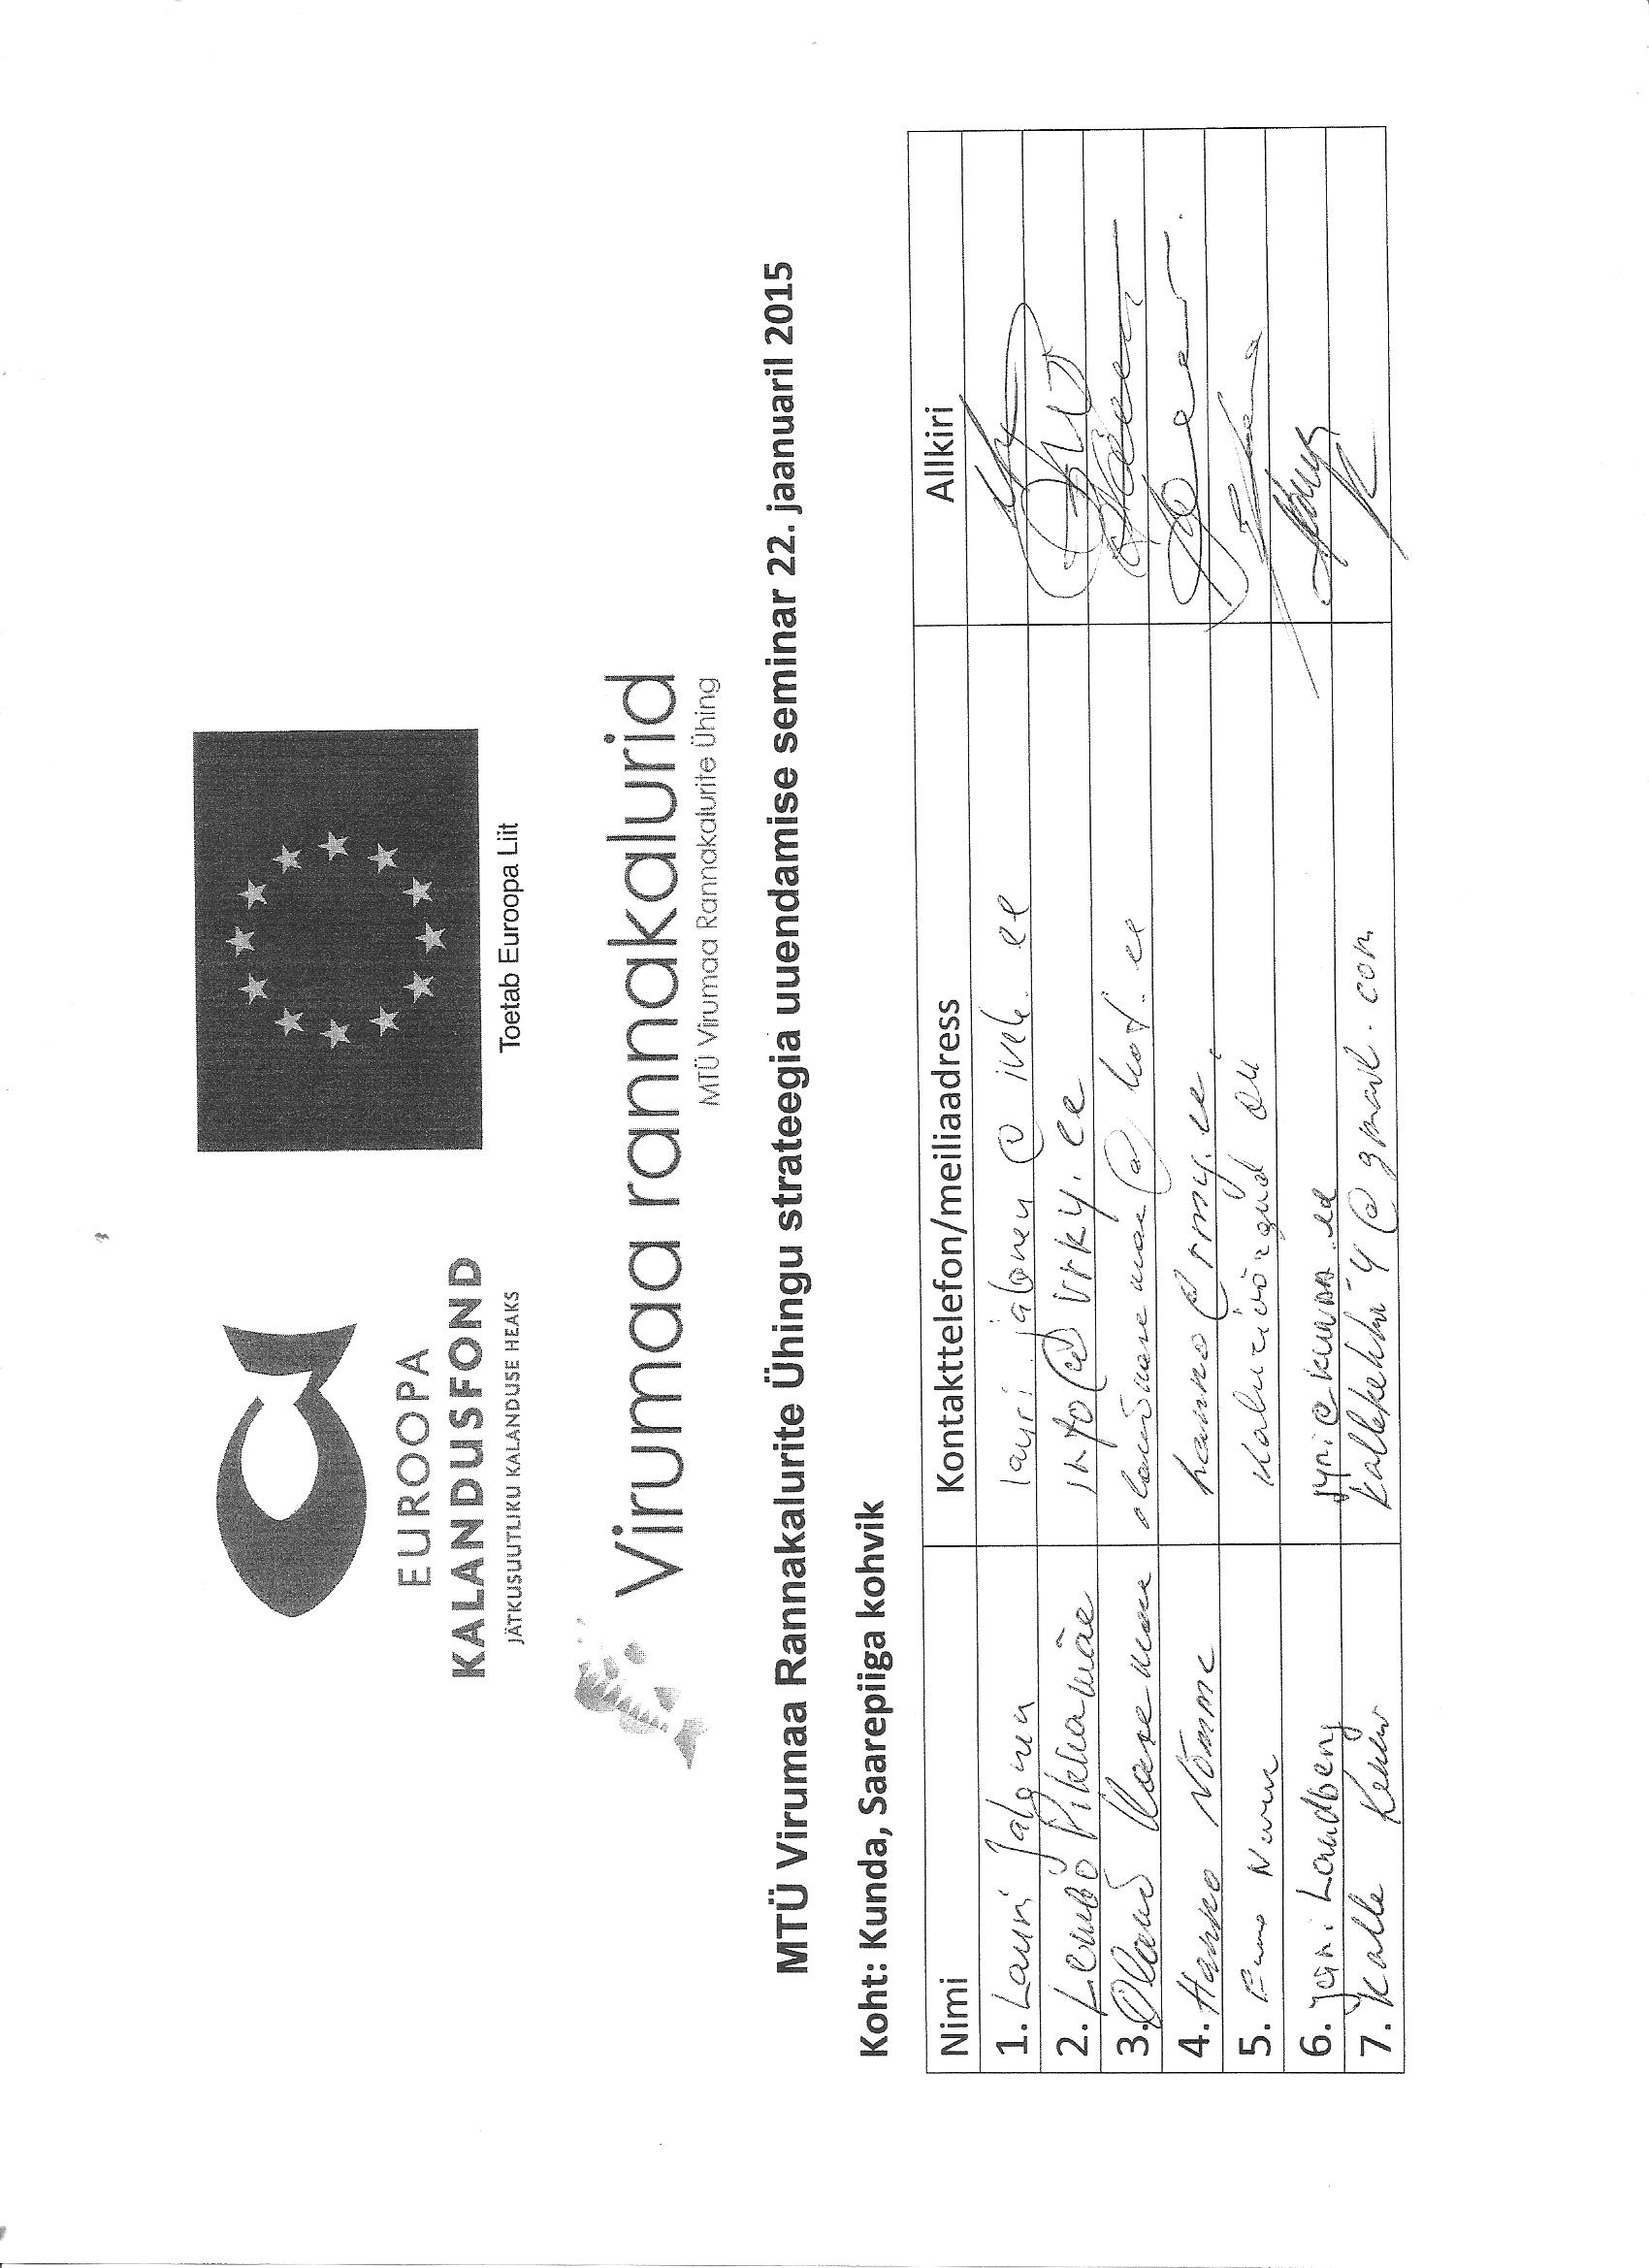 EUROOPA
KALANDUSFOND
JÄTKUSUUTLIKU KALANDUSE HEAKS
Toetab Euroopa Liit
Virumaa rannakalurid
MTÜ Virumaa Rannakalurite Ühing
MTÜ Virumaa Rannakalurite Ühingu strateegia uuendamise seminar 22. jaanuaril 2015
Koht: Kunda, Saarepiiga kohvik
Nimi Kontakttelefon/meiliaadress Allkiri
1. Lauri Jalonen lauri.jalonen@ivek.ee
2. Lembo Pikkamäe info@vrky.ee
3. Olavi @hot.ee
4. Hanno Nõmme hanno@rmy.ee
5. OÜ
6. Landberg @kunda.ee
7. Kalle kallekekki4@gmail.com